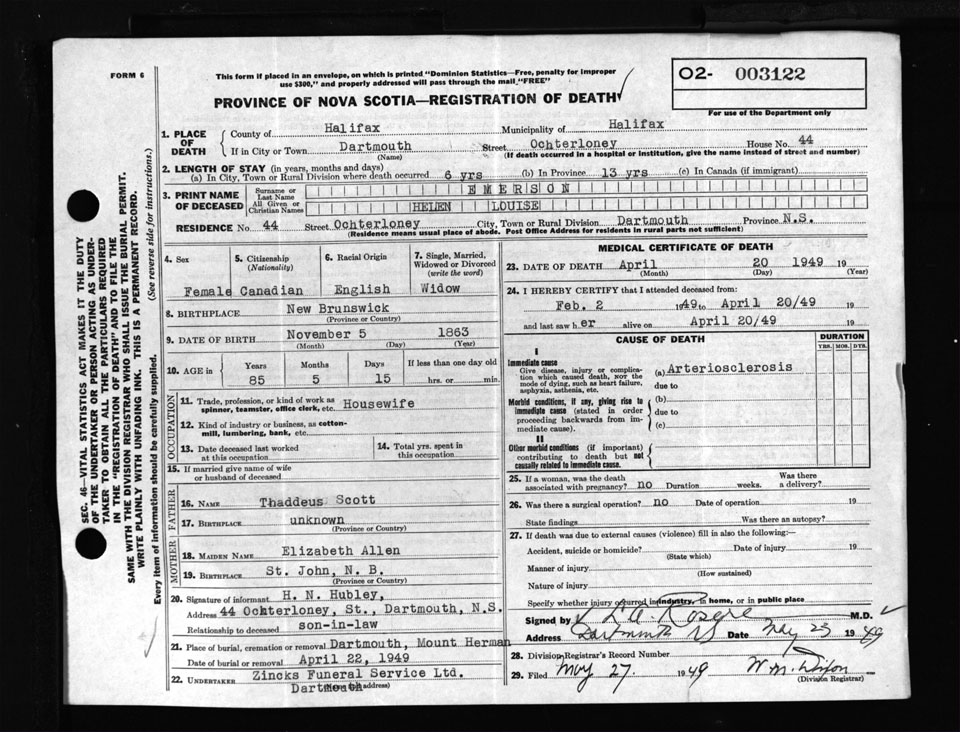 FORM 6
This form if placed in an envelope, on which is printed "Dominion Statistics—Free, penalty for improper
use $300," and properly addressed will pass through the mail "FREE"
O2- 003122
For use of the Department only
PROVINCE OF NOVA SCOTIA—REGISTRATION OF DEATH
1. PLACE OF DEATH
County of Halifax Municipality of Halifax
If in City or Town Dartmouth Street Ochterloney House No. 44
(Name) (If death occurred in a hospital or institution, give the name instead of street and number)
2. LENGTH OF STAY (in years, months and days)
(a) In City, Town or Rural Division where death occurred 6 yrs (b) In Province 13 yrs (c) In Canada (if immigrant)
3. PRINT NAME OF DECEASED
Surname or Last Name EMERSON
All Given or Christian Names HELEN LOUISE
RESIDENCE No. 44 Street Ochterloney City, Town or Rural Division Dartmouth Province N.S.
(Residence means usual place of abode. Post Office Address for residents in rural parts not sufficient)
4. Sex 5. Citizenship (Nationality) 6. Racial Origin 7. Single, Married, Widowed or Divorced (write the word)
Female Canadian English Widow
8. BIRTHPLACE New Brunswick
(Province or Country)
9. DATE OF BIRTH November 5 1863
(Month) (Day) (Year)
10. AGE in Years Months Days If less than one day old
85 5 15 hrs. or min.
OCCUPATION
11. Trade, profession, or kind of work as spinner, teamster, office clerk, etc. Housewife
12. Kind of industry or business, as cotton-mill, lumbering, bank, etc.
13. Date deceased last worked at this occupation
14. Total yrs. spent in this occupation
15. If married give name of wife or husband of deceased
FATHER
16. NAME Thaddeus Scott
17. BIRTHPLACE unknown
(Province or Country)
MOTHER
18. MAIDEN NAME Elizabeth Allen
19. BIRTHPLACE St. John, N. B.
(Province or Country)
20. Signature of informant H. N. Hubley,
Address 44 Ochterloney, St., Dartmouth, N.S.
Relationship to deceased son-in-law
21. Place of burial, cremation or removal Dartmouth, Mount Herman
Date of burial or removal April 22, 1949
22. UNDERTAKER Zincks Funeral Service Ltd.
Dartmouth (address)
MEDICAL CERTIFICATE OF DEATH
23. DATE OF DEATH April 20 1949 19
(Month) (Day) (Year)
24. I HEREBY CERTIFY that I attended deceased from:
Feb. 2 1949 to April 20/49 19
and last saw her alive on April 20/49 19
CAUSE OF DEATH DURATION
YRS. MOS. DYS.
I
Immediate cause
Give disease, injury or complication which caused death, nor the mode of dying, such as heart failure, asphyxia, asthenia, etc.
(a) Arteriosclerosis
due to
Morbid conditions, if any, giving rise to immediate cause (stated in order proceeding backwards from immediate cause).
(b)
due to
(c)
II
Other morbid conditions (if important) contributing to death but not causally related to immediate cause.
25. If a woman, was the death associated with pregnancy? no Duration weeks. Was there a delivery?
26. Was there a surgical operation? no Date of operation 19
State findings Was there an autopsy?
27. If death was due to external causes (violence) fill in also the following:—
Accident, suicide or homicide? Date of injury 19
(State which)
Manner of injury
(How sustained)
Nature of injury
Specify whether injury occurred in industry, in home, or in public place
Signed by M.D.
Address Dartmouth NS Date May 23 1949
28. Division Registrar's Record Number
29. Filed May 27. 1949 W. M.
(Division Registrar)
SEC. 46—VITAL STATISTICS ACT MAKES IT THE DUTY
OF THE UNDERTAKER OR PERSON ACTING AS UNDER-
TAKER TO OBTAIN ALL THE PARTICULARS REQUIRED
IN THE "REGISTRATION OF DEATH" AND TO FILE THE
SAME WITH THE DIVISION REGISTRAR WHO SHALL ISSUE THE BURIAL PERMIT.
WRITE PLAINLY WITH UNFADING INK. THIS IS A PERMANENT RECORD.
Every item of information should be carefully supplied. (See reverse side for instructions.)